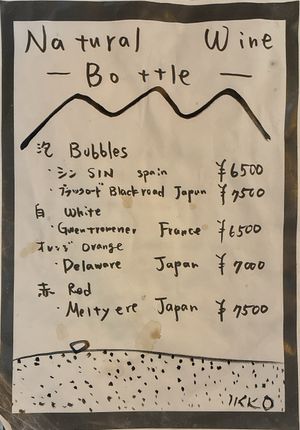 Natural Wine
— Bottle —
泡 Bubbles
・シン SIN spain ¥6500
・ブラックロード Black road Japan ¥7500
白 White
・Gwentromener France ¥6500
オレンジ Orange
・Delaware Japan ¥7000
赤 Red
・Melty ere Japan ¥7500
IKKO